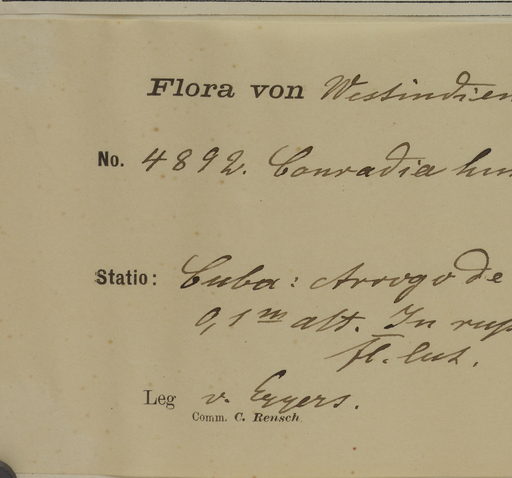 Flora von Westindien
No. 4892. Conradia hum
Statio: Cuba: Arroyo de
0,1m alt. In rup
fl. lut.
Leg v. Eggers.
Comm. C. Rensch.